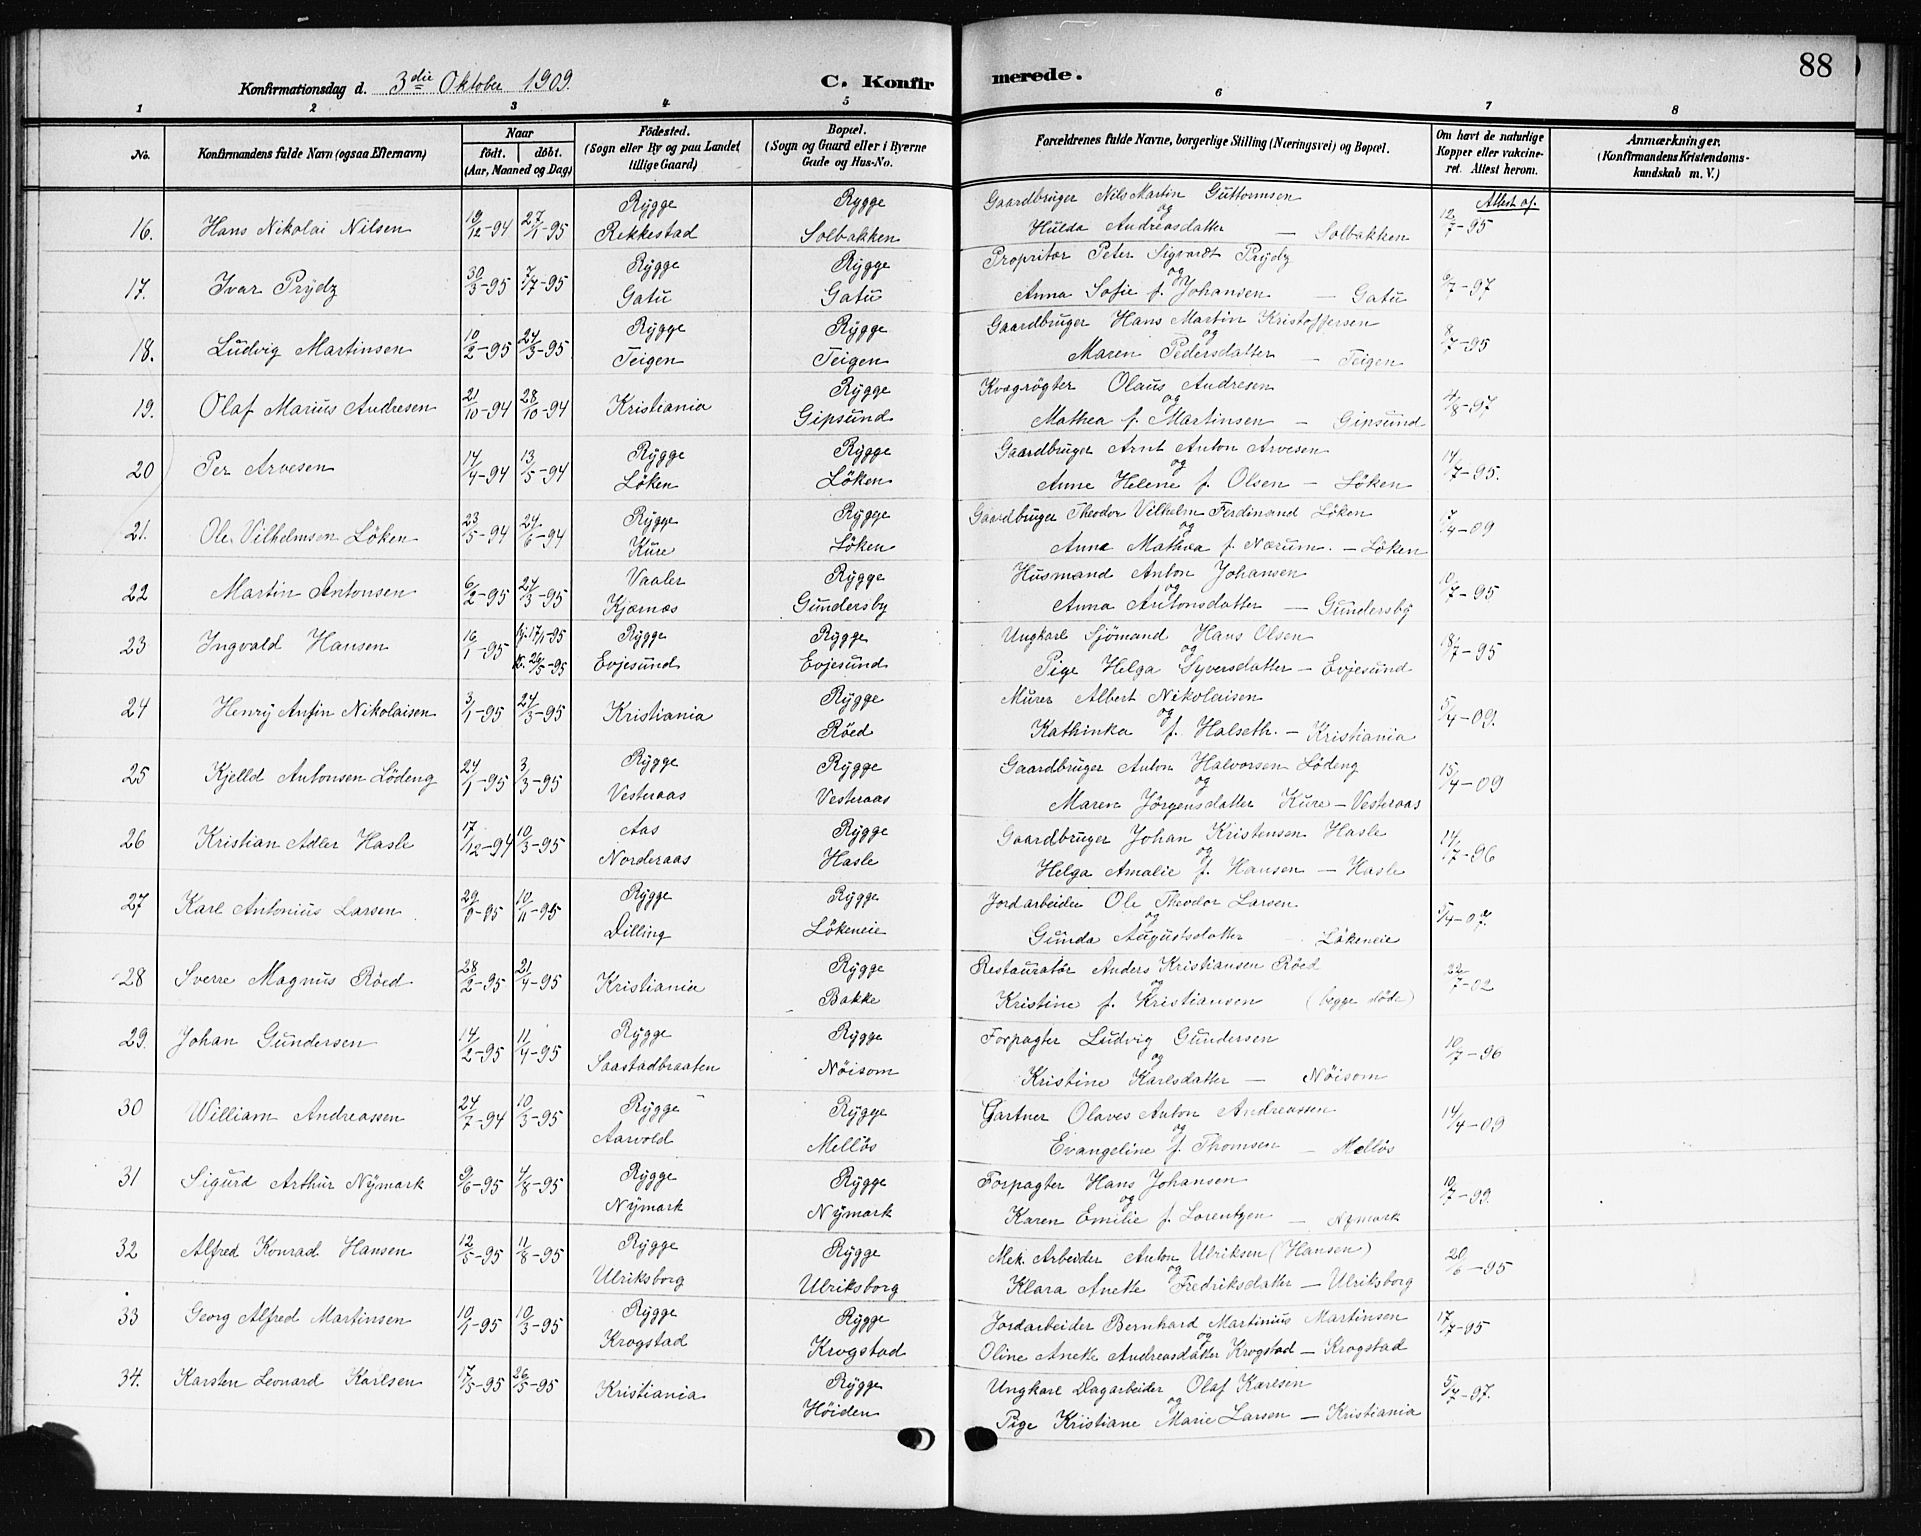 88
Konfirmationsdag d. 3die Oktober 1909. C. Konfirmerede.
1 2 3 4 5 6 7 8
No. Konfirmandens fulde Navn (ogsaa Efternavn) Naar født. døbt. (Aar, Maaned og Dag) Födested. (Sogn eller By og paa Landet tillige Gaard) Bopæl. (Sogn og Gaard eller i Byerne Gade og Hus-No. Forældrenes fulde Navne, borgerlige Stilling (Næringsvei) og Bopæl. Om havt de naturlige Kopper eller vakcineret. Attest herom. Anmærkninger. (Konfirmandens Kristendomskundskab m. V.)
Rygge Rygge Gaardbruger Nils Martin Guttormsen Attest af.
16. Hans Nikolai Nilsen 19/12-94 27/1-95 Rekkestad Solbakken og Hulda Andreasdatter — Solbakken 12/7-95
Rygge Rygge Propritær Peter Sigvardt Prydz
17. Ivar Prydz 30/3-95 7/7-95 Gatu Gatu og Anna Sofie f. Johansen — Gatu 9/7-97
Rygge Rygge Gaardbruger Hans Martin Kristoffersen
18. Ludvig Martinsen 10/2-95 24/3-95 Teigen Teigen og Maren Pedersdatter — Teigen 8/7-95
Rygge Kvægrøgter Olaus Andresen
19. Olaf Marius Andresen 21/10-94 28/10-94 Kristiania Gipsund og Mathea f. Martinsen — Gipsund 4/8-97
Rygge Rygge Gaardbruger Arnt Anton Arvesen
20 Per Arvesen 14/4-94 13/5-94 Löken Löken og Anne Helene f. Olsen — Löken 14/7-95.
Rygge Rygge Gaardbruger Theodor Vilhelm Ferdinand Löken
21. Ole Vilhelmsen Löken 23/5-94 24/6-94 Kure Löken og Anna Mathea f. Nærum. — Löken /4-09
Vaaler Rygge Husmand Anton Johansen
22 Martin Antonsen 6/2-95 24/3-95 Kjærnæs Gundersby og Anna Antonsdatter — Gundersby 10/7-95
Rygge Rygge Ungkarl Sjömand Hans Olsen
23 Ingvald Hansen 16/1-95 hj. 17/1-95 k. 26/5-95 Evjesund Evjesund og Pige Helga Syversdatter — Evjesund 18/7-95
Rygge Murer Albert Nikolaisen
24 Henry Anfin Nikolaisen 3/1-95 24/3-95 Kristiania Röed og Kathinka f. Halseth. — Kristiania 5/4-09.
Rygge Rygge Gaardbruger Anton Halvorsen Löding
25 Kjelld Antonsen Lödeng 24/1-95 3/3-95 Vesteraas Vesteraas og Maren Jörgensdatter Kure — Vesteraas 15/4-09
Aas Rygge Gaardbruger Johan Kristensen Hasle
26 Kristian Adler Hasle 17/12-94 10/3-95 Norderaas Hasle og Helga Amalie f. Hansen — Hasle 14/7-96
Rygge Rygge Jordarbeider Ole Theodor Larsen
27 Karl Antonius Larsen 29/9-95 10/11-95 Dilling Lökeneie og Gunda Augustsdatter — Lökeneie 5/4-07.
Rygge Restauratør Anders Kristiansen Röed
28 Sverre Magnus Röed 28/2-95 21/4-95 Kristiania Bakke og Kristine f. Kristiansen (begge döde) 22/7-02
Rygge Rygge Forpagter Ludvig Gundersen
29. Johan Gundersen 14/2-95 11/4-95 Saastadbraaten Nöisom og Kristine Karlsdatter — Nöisom 10/7-96
Rygge Rygge Gartner Olaves Anton Andreassen
30 William Andreassen 24/7-94 10/3-95 Aarvold Mellös og Evangeline f. Thomsen — Mellös 14/4-09
Rygge Rygge Forpagter Hans Johansen
31 Sigurd Arthur Nymark 9/6-95 4/8-95 Nymark Nymark og Karen Emilie f. Lorentzen — Nymark 10/7-99.
Rygge Rygge Mek. Arbeider Anton Ulriksen (Hansen)
32 Alfred Konrad Hansen 12/5-95 11/8-95 Ulriksborg Ulriksborg og Klara Anette Fredriksdatter — Ulriksborg 20/6-95
Rygge Rygge Jordarbeider Bernhard Martinius Martinsen
33 Georg Alfred Martinsen 10/1-95 10/3-95 Krogstad Krogstad og Oline Anette Andreasdatter Krogstad — Krogstad 17/7-95
Rygge Ungkarl Dagarbeider Olaf Karlsen
34. Karsten Leonard Karlsen 17/5-95 26/5-95 Kristiania Höiden og Pige Kristiane Marie Larsen — Kristiania 5/7-97.